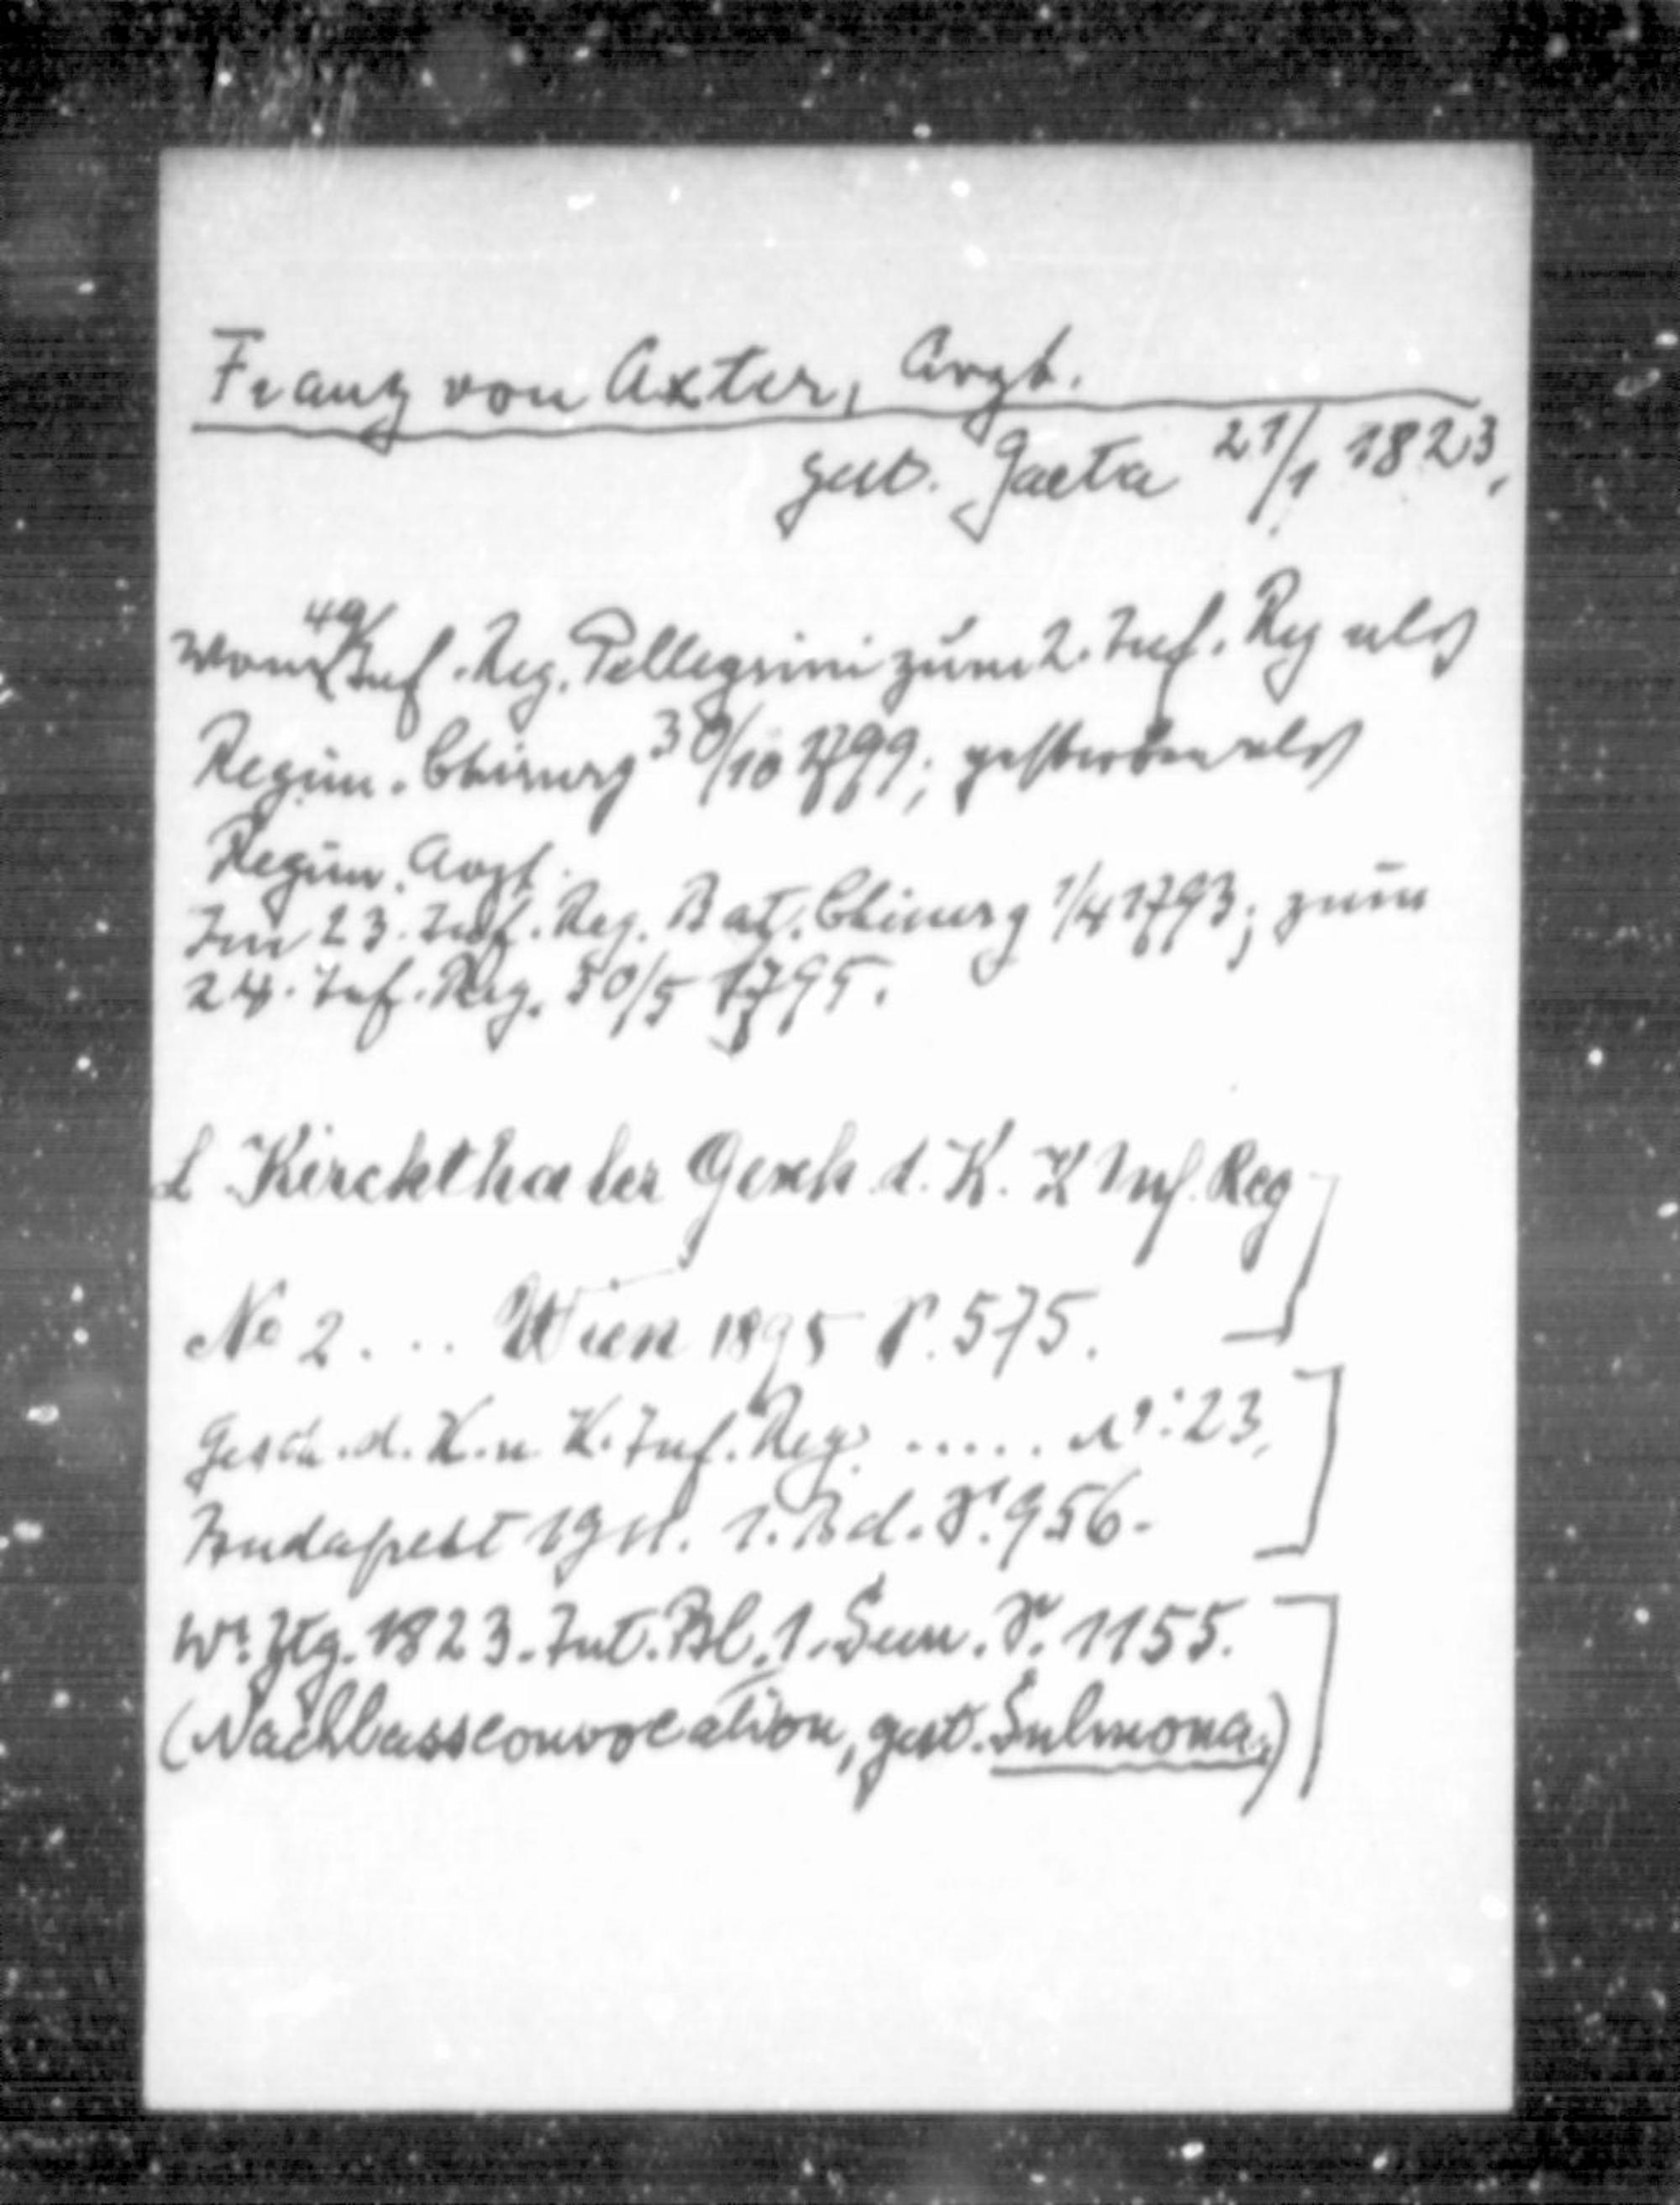 Franz von Axter, Arzt.
gest. Gaeta 21/1 1823.
Vom 49/ Inf. Reg. Pellegrini zum 2. Inf. Reg als
Regim. Chirurg 30/10 1799; gestorben als
Regim. Arzt.
Im 23. Inf. Reg. Bat. Chirurg 1/4 1793; zum
24. Inf. Reg. 30/5 1795.
L Kirchthaler Gesch d. K. K Inf. Reg
No 2 . . . Wien 1895 S. 575.
Gesch. d. K. u K. Inf. Reg. ..... Nº: 23,
Budapest 1911. 1. Bd. S. 956.
Wr. Ztg. 1823. Int. Bl. 1. Sem. S. 1155.
(Nachlassconvocation, gest. Sulmona.)